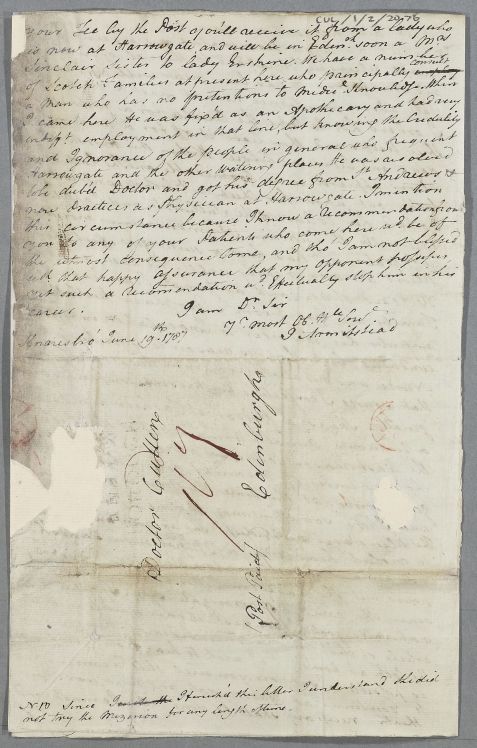 CUL/1/2/2076
your Fee by the Post you'll receive it from a Lady who
is now at Harrowgate and will be in Edinr. soon a Mrs
Sinclair Sister to Lady Erskine. We have a number
of Scotch Families at present here who principally consult
a Man who has no pretentions to Medicl. Knowledge. When
I came here He was fix'd as an Apothecary and had very
indift. employment in that line, but knowing the Credulity
and Ignorance of the People in general who frequent
Harrowgate and the other watering places He was resolved
to be dub'd Doctor and got his degree from St Andrews &
now Practices as Physician at Harrowgate. I mention
this circumstance because I know a Recommendation from
you to any of your Patients who come here wd. be of
the utmost consequence to me, and tho' I am not blessed
with that happy assurance that my opponent possesses
yet such a Recomendation wd. effectually stop him in his
career.
I am Dr Sir
Yr. most Ob. Hle Servt.
J Armitstead
Knaresbro' June 19th. 1787
Doctor Cullen
Edinburgh
(Post Paid)
NB Since I finish'd this letter I understand she did
not try the Mezereon for any length of time.